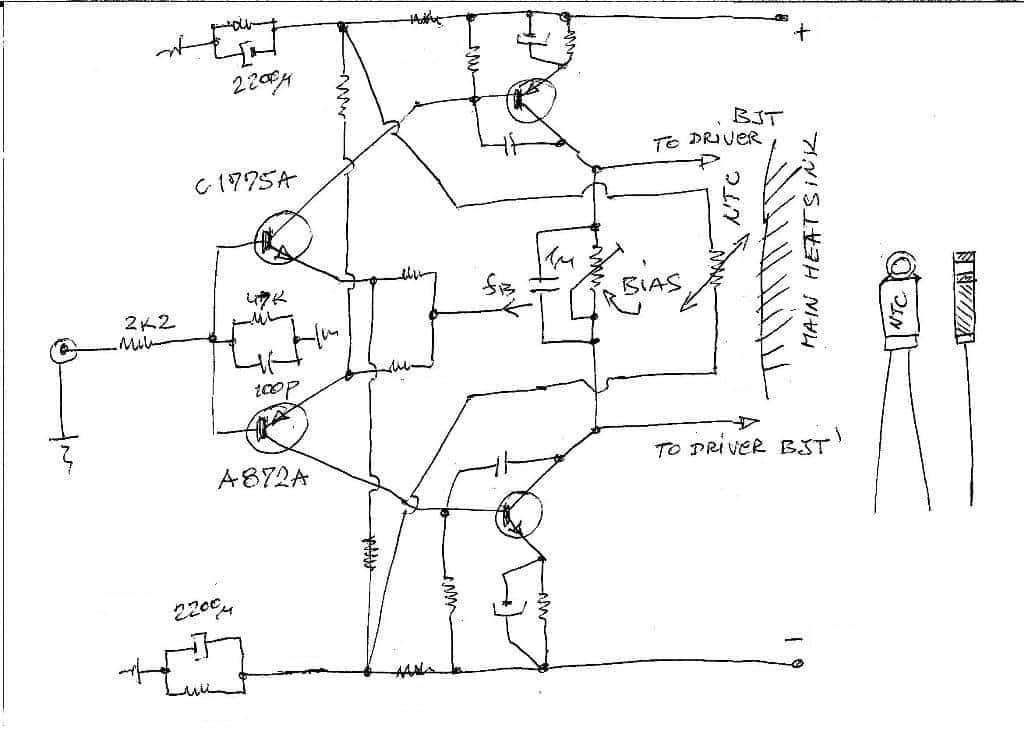 +
2200µ
BJT
TO DRIVER
C1775A
NTC
MAIN HEATSINK
fB
1µ
BiAS
NTC
47K
2K2
100P
TO DRIVER BJT'
A872A
2200µ
-